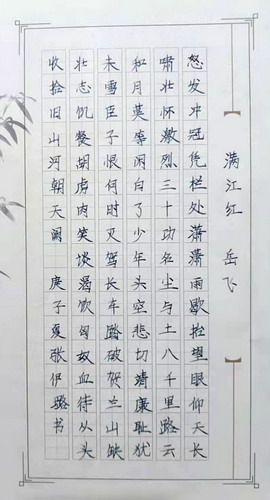 满江红 岳飞
怒发冲冠凭栏处潇潇雨歇抬望眼仰天长
啸壮怀激烈三十功名尘与土八千里路云
和月莫等闲白了少年头空悲切靖康耻犹
未雪臣子恨何时灭驾长车踏破贺兰山缺
壮志饥餐胡虏肉笑谈渴饮匈奴血待从头
收拾旧山河朝天阙 庚子夏张伊璐书